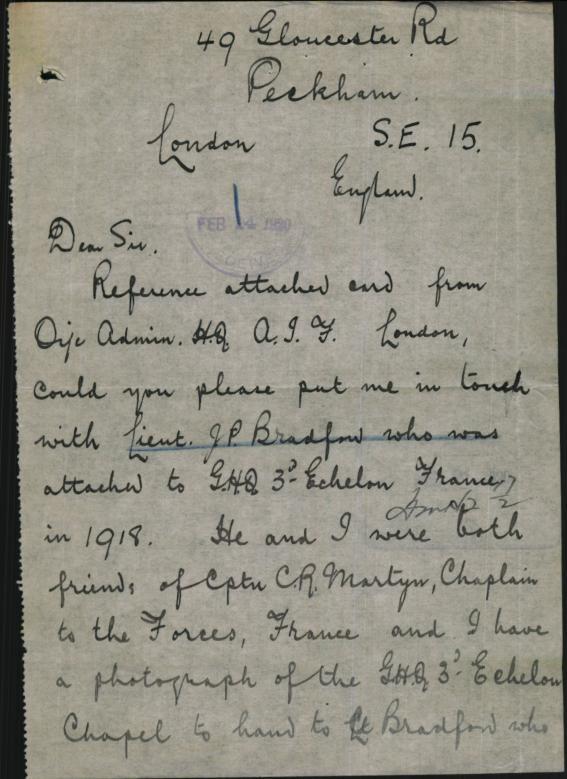 49 Gloucester Rd
Peckham.
London S.E. 15.
England.
FEB 24 1920
Dear Sir.
Reference attached card from
O/c Admin. H.Q A.I.F. London,
could you please put me in touch
with Lieut. J.P. Bradford who was
attached to G.H.Q 3rd Echelon France
in 1918. He and I were both
friends of Cptn C.R. Martyn, Chaplain
to the Forces, France and I have
a photograph of the G.H.Q 3rd Echelon
Chapel to hand to Lt Bradford who